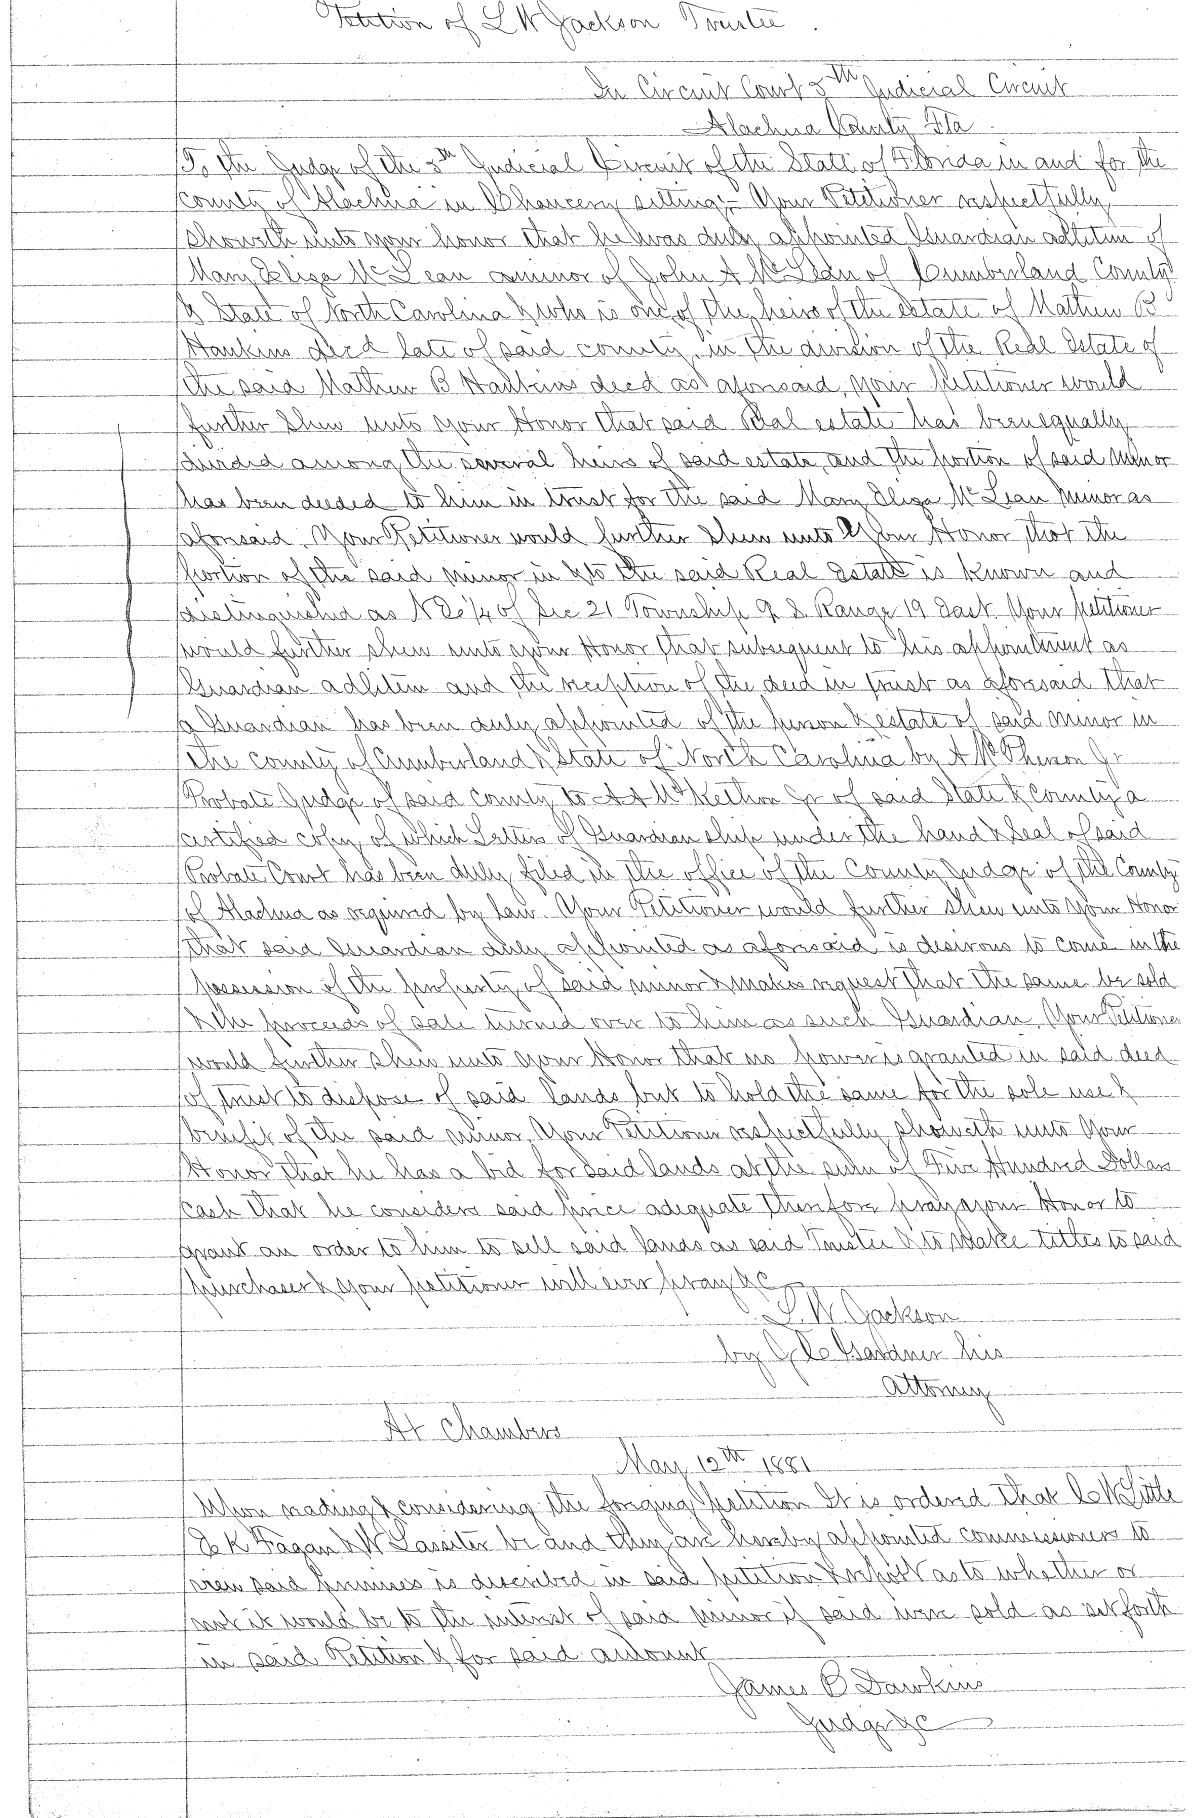 Petition of L W Jackson Trustee.
In Circuit Court 5th Judicial Circuit
Alachua County Fla.
To the Judge of the 5th Judicial Circuit of the State of Florida in and for the
County of Alachua in Chancery sitting;- Your Petitioner respectfully
showeth unto your honor that he was duly appointed Guardian adlitem of
Mary Eliza McLean a minor of John A McLean of Cumberland County
& State of North Carolina & who is one of the heirs of the estate of Mathew B
Hankins decd late of said county, in the division of the Real Estate of
the said Mathew B Hankins decd as aforesaid, your petitioner would
further shew unto your Honor that said Real estate has been equally
divided among the several heirs of said estate, and the portion of said Minor
has been deeded to him in trust for the said Mary Eliza McLean Minor as
aforesaid. Your Petitioner would further shew unto Your Honor, that the
portion of the said minor in & to the said Real Estate is known and
distinguished as N E 1/4 of Sec 21 Township 9 S Range 19 East. Your petitioner
would further shew unto your Honor that subsequent to his appointment as
Guardian adlitem and the reception of the deed in trust as aforesaid that
a Guardian has been duly appointed of the person & estate of said minor in
the county of Cumberland & State of North Carolina by A McPherson Jr
Probate Judge of said county to A A McKethon Jr of said State & County a
certified copy of which Letters of Guardian ship under the hand & Seal of said
Probate Court has been duly filed in the office of the County Judge of the County
of Alachua as required by law. Your Petitioner would further shew unto Your Honor
that said Guardian duly appointed as aforesaid is desirous to come in the
possession of the property of said minor & makes request that the same be sold
& the proceeds of sale turned over to him as such Guardian. Your Petitioner
would further shew unto your Honor that no power is granted in said deed
of trust to dispose of said lands but to hold the same for the sole use &
benefit of the said minor. Your Petitioner respectfully showeth unto Your
Honor that he has a bid for said lands at the sum of Five Hundred Dollars
cash that he considers said price adequate, therefore prays your Honor to
grant an order to him to sell said lands as said Trustee & to make titles to said
purchaser & your petitioner will ever pray &c
L. W. Jackson
by J C Gardner his
Attorney
At Chambers
May 12th 1881
Upon reading & considering the forging petition It is ordered that C W Little
E K Fagan & W Lassiter be and they are hereby appointed commissioners to
view said premises is described in said petition & report as to whether or
not it would be to the interest of said minor if said were sold as set forth
in said Petition & for said amount
James B Dawkins
Judge &C